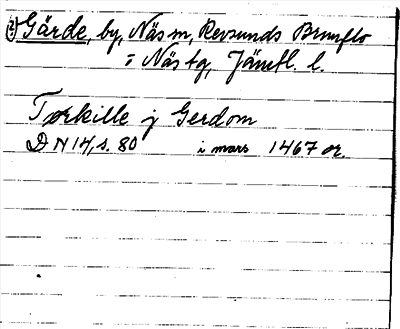 Gärde, by, Näs sn, Revsunds Brunflo
= Näs tg, Jämtl. l.
Torkille j Gerdom
DN 14, s. 80 i mars 1467 or.